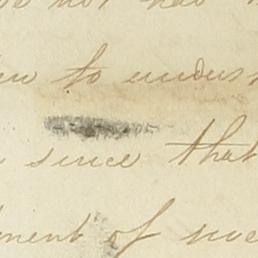 not has
to unders
since that
ment of me